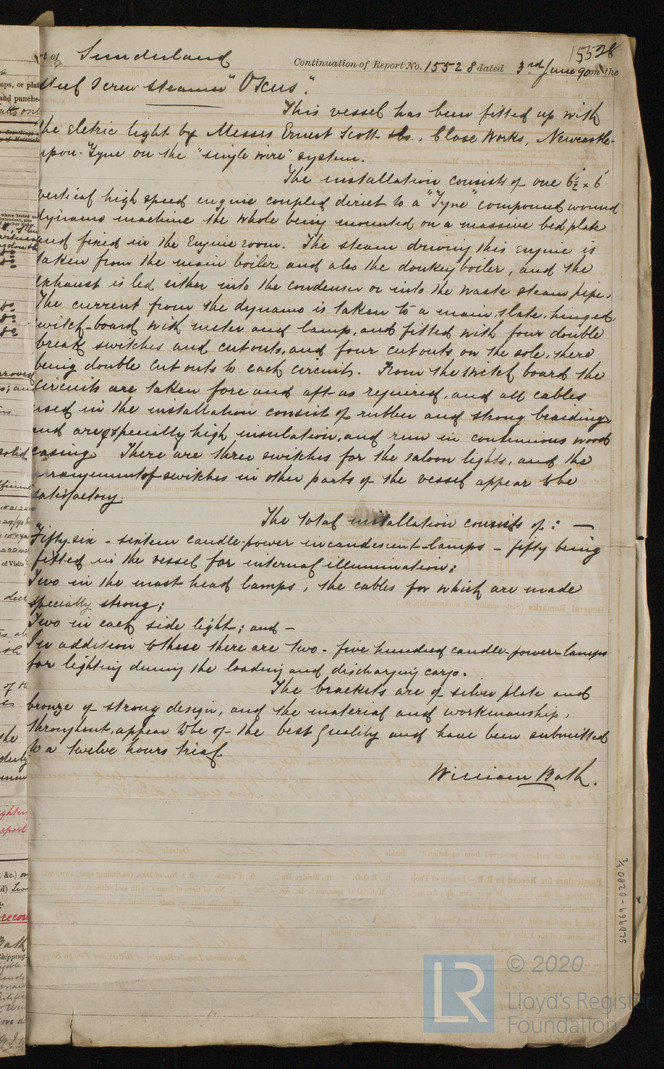 15528
of Sunderland Continuation of Report No. 15528 dated 3rd June 90 on the
Steel Screw Steamer "Oxus".
This vessel has been fitted up with
the Eletric light by Messrs Ernest Scott & Co., Close Works, Newcastle-
upon-Tyne on the "single wire" system.
The installation consists of one 6½ × 6
vertical high speed engine coupled direct to a "Tyne" compound wound
dynamo machine the whole being mounted on a massive bedplate
and fixed in the Engine room. The steam driving this engine is
taken from the main boiler and also the donkey boiler, and the
exhaust is led either into the condenser or into the waste steam pipe.
The current from the dynamo is taken to a main slate, hinged
switch-board with meter and lamp, and fitted with four double
break switches and cut outs, and four cut outs on the sole, there
being double cut outs to each circuit. From the switch board the
circuits are taken fore and aft as required, and all cables
used in the installation consist of rubber and strong braiding
and are especially high insulation, and run in continuous wood
casing. There are three switches for the saloon lights, and the
arrangement of switches in other parts of the vessel appear to be
satisfactory.
The total installation consists of: —
Fifty six - sixteen candle power incandescent lamps - fifty being
fitted in the vessel for internal illumination;
Two in the mast head lamps, the cables for which are made
specially strong;
Two in each side light; and -
In addition to these there are two - five hundred candle-power lamps
for lighting during the loading and discharging cargo.
The brackets are of silver plate and
bronze of strong design, and the material and workmanship,
throughout, appear to be of the best quality and have been submitted
to a twelve hours trial.
William Bath.
LR
© 2020
Lloyd's Register
Foundation